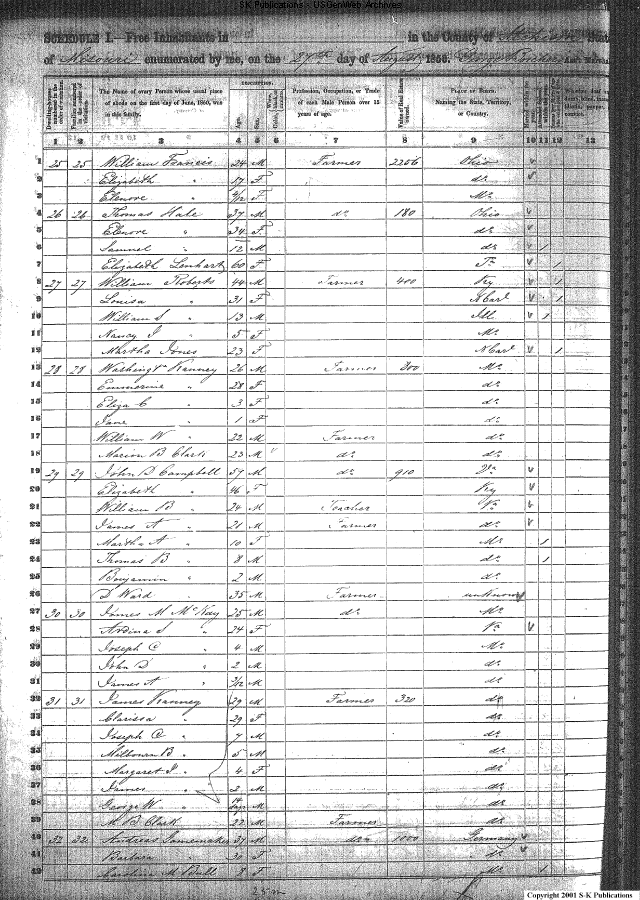 S-K Publications - USGenWeb Archives
SCHEDULE I.—Free Inhabitants in in the County of State
of Missouri enumerated by me, on the 27th day of August 1850.
DESCRIPTION.
The Name of every Person whose usual place of abode on the first day of June, 1850, was in this family.
Age.
Sex.
Profession, Occupation, or Trade of each Male Person over 15 years of age.
Value of Real Estate owned.
PLACE OF BIRTH.
Naming the State, Territory, or Country.
1 2 3 4 5 6 7 8 9 10 11 12 13
1 25 25 William Francis 24 M Farmer 2256 Ohio
2 Elizabeth " 17 F do
3 Elenore " 9/12 F Mo
4 26 26 Thomas Hale 37 M do 180 Ohio
5 Elenore " 34 F do
6 Samuel " 12 M do 1
7 Elizabeth Lenhart 60 F Pa 1
8 27 27 William Roberts 44 M Farmer 400 Ky 1
9 Louisa " 31 F N Car 1
10 William S " 13 M Ill 1
11 Nancy J " 5 F Mo
12 Martha Jones 23 F N Car 1
13 28 28 Washingtn Ranney 26 M Farmer 800 Mo
14 Emmerine " 28 F do
15 Eliza C " 3 F do
16 Jane " 1 F do
17 William W " 22 M Farmer do
18 Marion B Clark 23 M do do
19 29 29 John D Campbell 57 M do 910 Va
20 Elizabeth " 46 F Ky
21 William B " 24 M Teacher Va
22 James A " 21 M Farmer do
23 Martha A " 10 F Mo 1
24 Thomas B " 8 M do 1
25 Benjamin " 2 M do
26 D Ward 35 M Farmer unknown
27 30 30 James M McKay 25 M do Mo
28 Ardina S " 24 F Va
29 Joseph C " 4 M Mo
30 John D " 2 M do
31 James A " 2/12 M do
32 31 31 James Ranney 29 M Farmer 320 do
33 Clarissa " 29 F do
34 Joseph C " 7 M do
35 Milbourn B " 5 M do
36 Margaret J " 4 F do
37 James " 2 M do
38 George W " M do
39 M B Clark 22 M Farmer do
40 32 32 Andreas 37 M do 1000 Germany
41 Barbara " 30 F do
42 Caroline M Bull 8 F Mo 1
Copyright 2001 S-K Publications